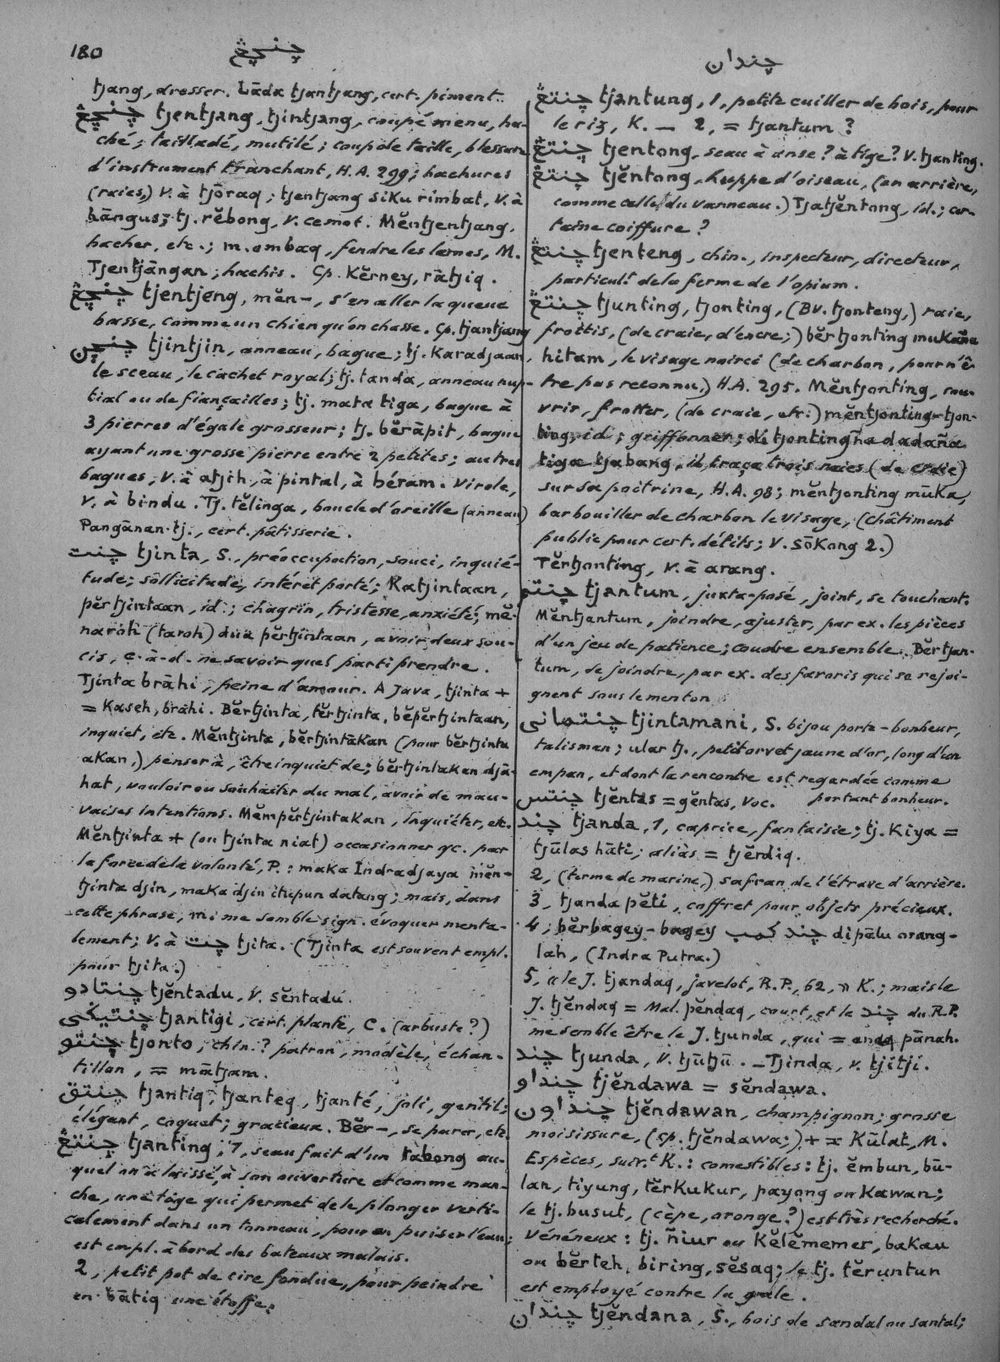 180
چنچڠ
چندان
tjang, dresser. Lāda tjantjang, cert. piment.
چنچڠ tjentjang, tjintjang, coupé menu, ha-
ché; tailladé, mutilé; coup de taille, blessure
d'instrument tranchant, H.A. 299; hachures
(raies,) V. à tjōraq; tjentjang siku rimbat, V. à
bāngus; tj. rĕbong, V. cemot. Mĕntjentjang,
hacher, etc.; m. ombaq, fendre les lames, M.
Tjentjāngan; hachis. Cp. Kĕrney, rātjiq.
چنچڠ tjentjeng, mĕn-, s'en aller la queue
basse, comme un chien qu'on chasse. Cp. tjantjang
چنچين tjintjin, anneau, bague; tj. Karadjaan,
le sceau, le cachet royal; tj. tanda, anneau nup-
tial ou de fiançailles; tj. mata tiga, bague à
3 pierres d'égale grosseur; tj. bĕrāpit, bague
ayant une grosse pierre entre 2 petites; autres
bagues, V. à atjih, à pintal, à béram. Virole,
V. à bindu. Tj. tĕlinga, boucle d'oreille (anneau)
Pangānan tj., cert. pâtisserie.
چنت tjinta, S., préoccupation, souci, inquié-
tude; sollicitude, intérêt porté; Katjintaan,
pĕrtjintaan, id.; chagrin, tristesse, anxiété; mĕ-
narōh (taroh) dua pĕrtjintaan, avoir deux sou-
cis, c.-à-d. ne savoir quel parti prendre.
Tjinta brāhi, peine d'amour. A Java, tjinta +
= Kaseh, brāhi. Bĕrtjinta, tĕrtjinta, bĕpĕrtjintaan,
inquiet, etc. Mĕntjinta, bĕrtjintākan (pour bĕrtjinta
akan,) penser à, être inquiet de; bĕrtjintakan djā-
hat, vouloir ou souhaiter du mal, avoir de mau-
vaises intentions. Mĕmpĕrtjintakan, inquiéter, etc.
Mĕntjinta + (ou tjinta niat) occasionner qc. par
la force de la volonté, P.: maka Indradjaya mĕn-
tjinta djin, maka djin itupun datang; mais, dans
cette phrase, m. me semble sign. évoquer menta-
lement; V. à چت tjita. (Tjinta est souvent empl.
pour tjita.)
چنتادو tjĕntadu, V. sĕntadu.
چنتيڬي tjantigi, cert. plante, C. (arbuste?)
چنتو tjonto, chin.? patron, modèle, échan-
tillon, = mātjam.
چنتق tjantiq, tjanteq, tjanté, joli, gentil;
élégant, coquet; gracieux. Bĕr-, se parer, etc.
چنتڠ tjanting, 1, seau fait d'un tabong au-
quel on a laissé, à son ouverture et comme man-
che, une tige qui permet de le plonger verti-
calement dans un tonneau, pour en puiser l'eau;
est empl. à bord des bateaux malais.
2, petit pot de cire fondue, pour peindre
en bātiq une étoffe.
چنتڠ tjantung, 1, petite cuiller de bois, pour
le riz, K. — 2, = tjantum?
چنتڠ tjentong, seau à anse? à tige? V. tjanting.
چنتڠ tjĕntong, huppe d'oiseau, (en arrière,
comme celle du vanneau.) Tjatjĕntong, id.; cer-
taine coiffure?
چنتڠ tjenteng, chin., inspecteur, directeur,
particul.t de la ferme de l'opium.
چنتڠ tjunting, tjonting, (Bv. tjonteng,) raie,
frottis, (de craie, d'encre;) bĕrtjonting mukāña
hitam, le visage noirci (de charbon, pour n'ê-
tre pas reconnu,) H.A. 295. Mĕntjonting, cou-
vrir, frotter, (de craie, etc.) mĕntjonting-tjon-
ting, id; griffonner; di tjontingña dadaña
tiga tjabang, il traça trois raies (de craie)
sur sa poitrine, H.A. 98; mĕntjonting mūka,
barbouiller de charbon le visage, (châtiment
public pour cert. délits; V. sōkong 2.)
Tĕrtjonting, V. à arang.
چنتم tjantum, juxta-posé, joint, se touchant.
Mĕntjantum, joindre, ajuster, par ex. les pièces
d'un jeu de patience; coudre ensemble. Bĕrtjan-
tum, se joindre, par ex. des favoris qui se rejoi-
gnent sous le menton.
چنتماني tjintamani, S. bijou porte-bonheur,
talisman; ular tj., petit orvet jaune d'or, long d'un
empan, et dont la rencontre est regardée comme
portant bonheur.
چنتس tjĕntas = gĕntas, voc.
چند tjanda, 1, caprice, fantaisie; tj. Kiya =
tjūlas hāti; aliàs = tjĕrdiq.
2, (terme de marine,) safran de l'étrave d'arrière.
3, tjanda pĕti, coffret pour objets précieux.
4, bĕrbagey-bagey چند كمب dipālu orang-
lah, (Indra Putra.)
5, «le J. tjandaq, javelot, R.P., 62,» K.; mais le
J. tjĕndaq = Mal. pĕndaq, court, et le چند du R.P.
me semble être le J. tjunda, qui = anaq pānah.
چند tjunda, V. tjūtjū. — Tjinda, v. tjitji.
چنداو tjĕndawa = sĕndawa.
چنداون tjĕndawan, champignon; grosse
moisissure, (cp. tjĕndawa;) + = Kūlat, M.
Espèces, suiv.t K.: comestibles: tj. ĕmbun, bū-
lan, tiyung, tĕrkukur, payong ou Kawan;
le tj. busut, (cèpe, oronge?) est très recherché.
Vénéneux: tj. ñiur ou kĕlĕmemer, bakau
ou bĕrteh, biring, sĕsaq; le tj. tĕruntun
est employé contre la gale.
چندان tjĕndana, S., bois de sandal ou santal;